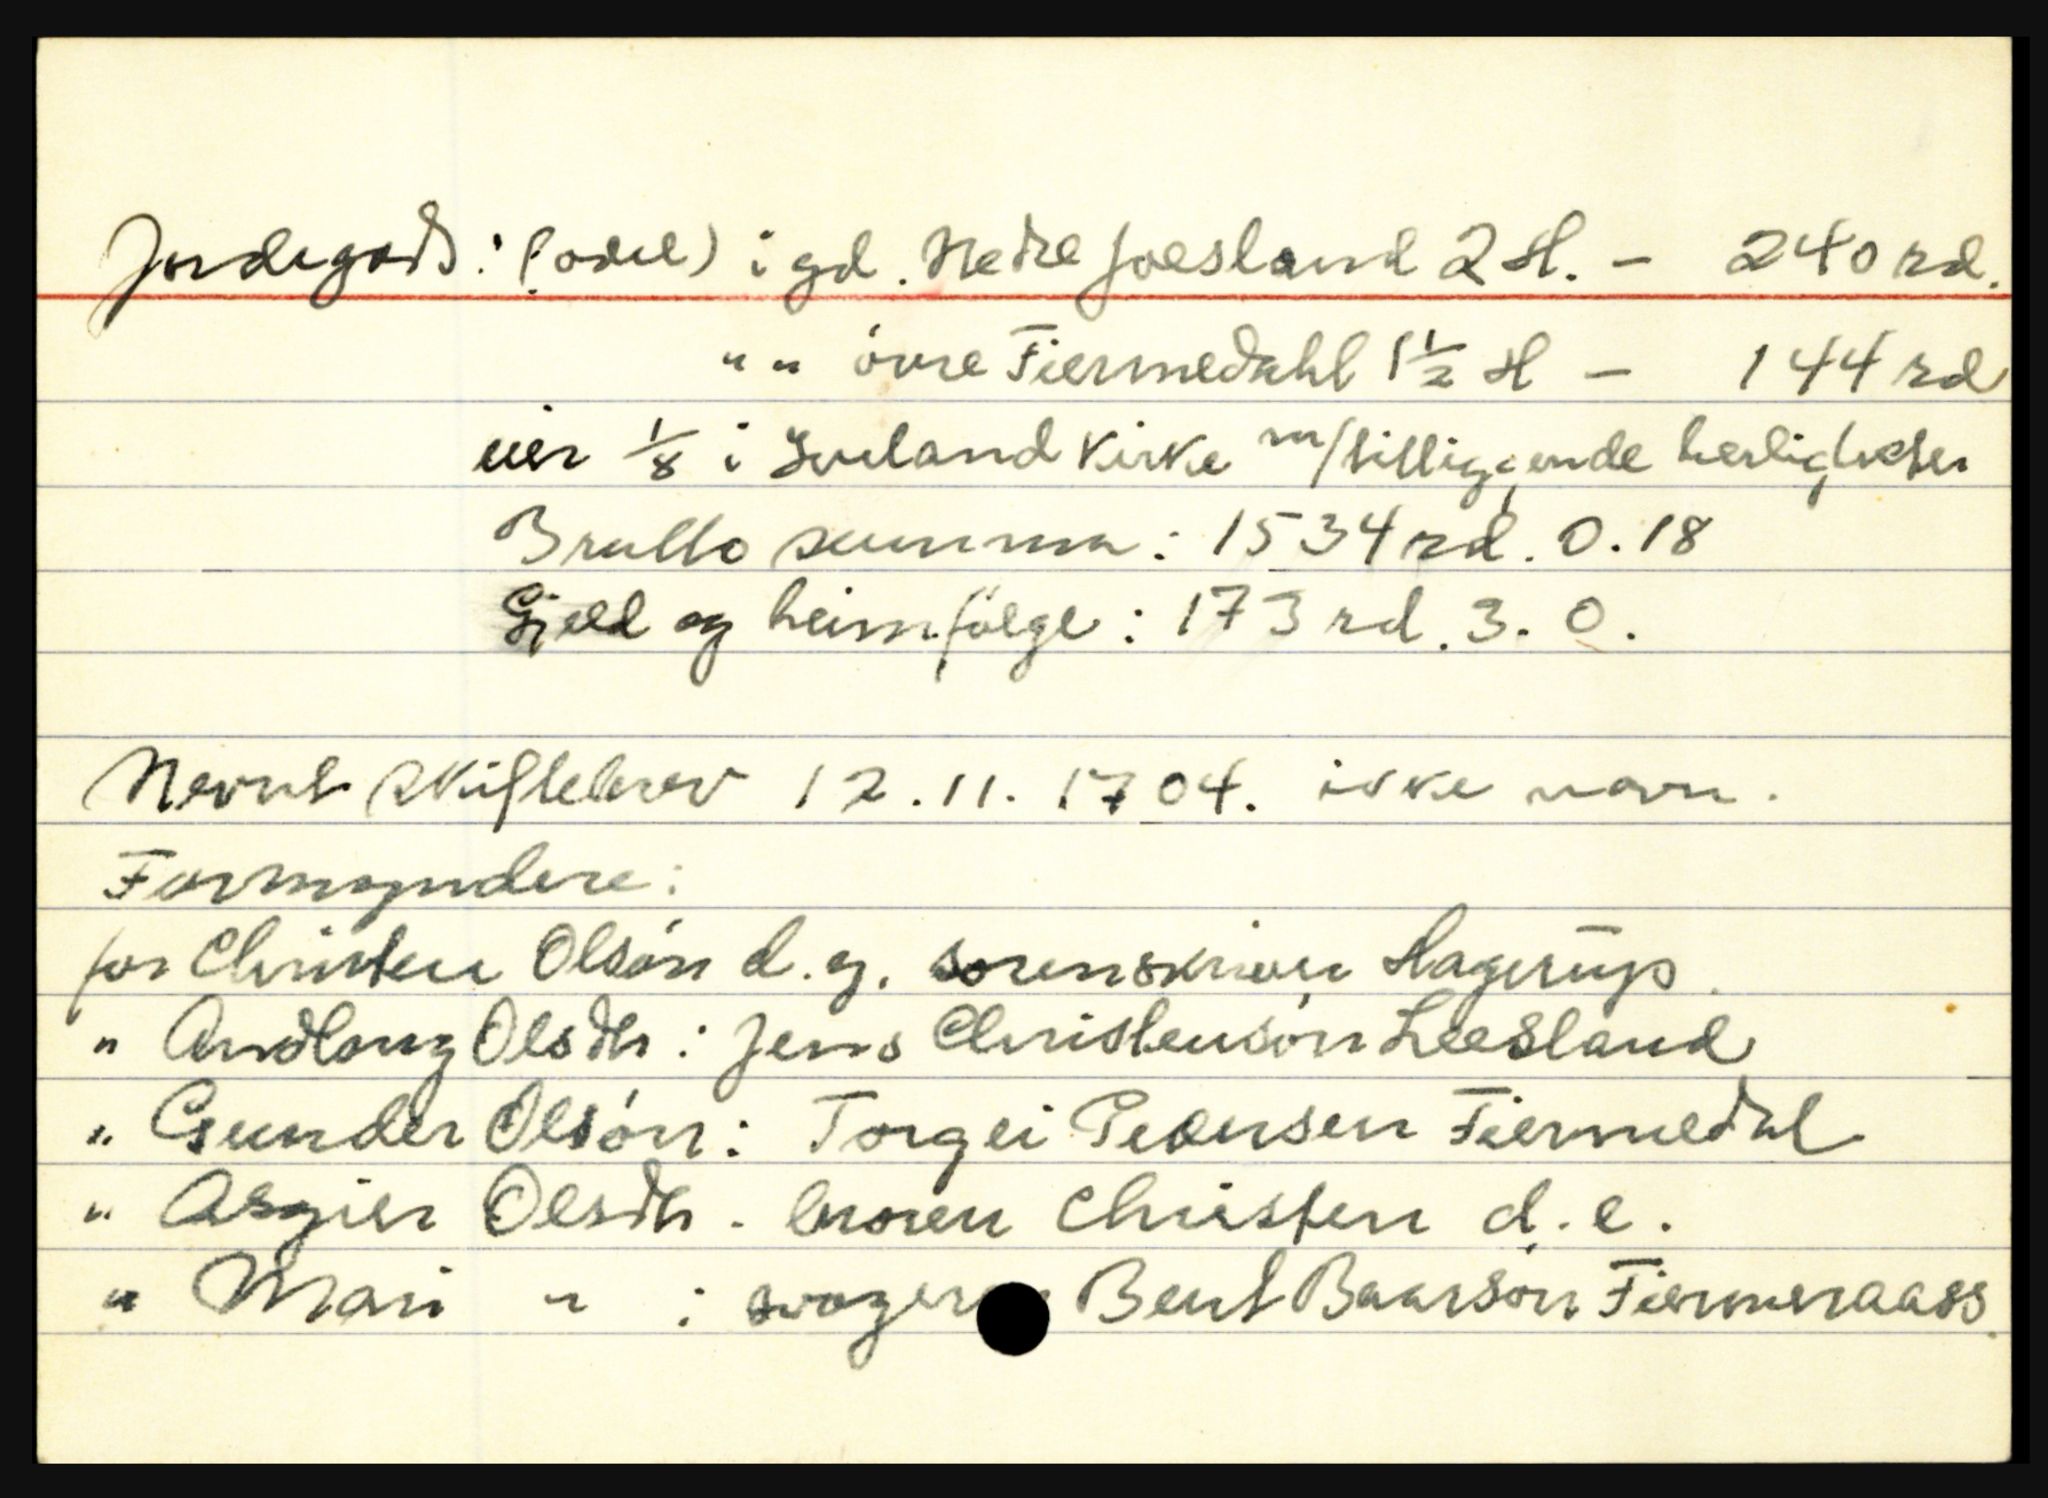 Jordegods: (odel) i gd. Nedre Joesland 2 H. - 240 rd.
" " övre Fiermedahl 1½ H - 144 rd
eier 1/8 i Iveland Kirke m/tilliggende herligheter
Brutto summa: 1534 rd. 0.18
Gjeld og heimfølge: 173 rd. 3. 0.
Nevnt skiftebrev 12.11.1704. ikke navn.
Formyndere:
for Christen Olsón d.y. sorenskriver Hagerup.
" Andlaug Olsdtr: Jens Christensón Leesland
" Gunder Olsón: Torgei Pedersen Fiermedal
" Asgier Olsdtr. broren Christen d.e.
" Mari " : svogeren Bent Baarsón Fiermeraass.